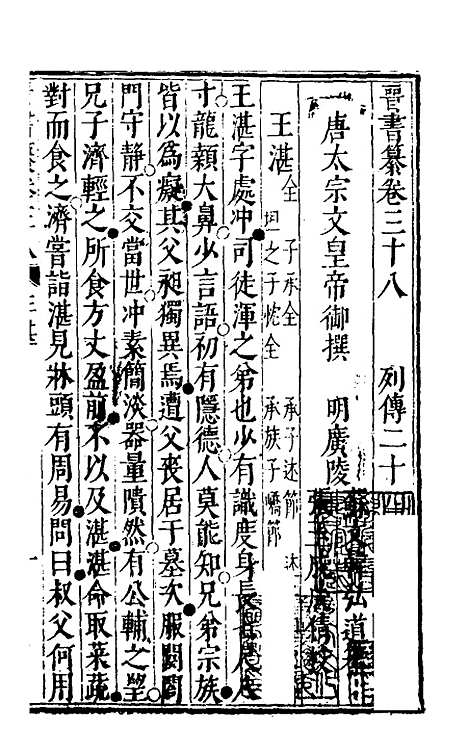 晉書纂卷三十八 列傳二十四
唐太宗文皇帝御撰 明廣陵
弘道
王湛全 子承全 承子述節
坦之子忱全 承族子嶠節
王湛字處冲司徒渾之弟也少有識度身長七尺八
寸龍顙大鼻少言語初有隱德人莫能知兄弟宗族
皆以為癡其父昶獨異焉遭父喪居于墓次服闋闔
門守静不交當世冲素簡淡器量隤然有公輔之望
兄子濟輕之所食方丈盈前不以及湛湛命取菜蔬
對而食之濟嘗詣湛見牀頭有周易問曰叔父何用